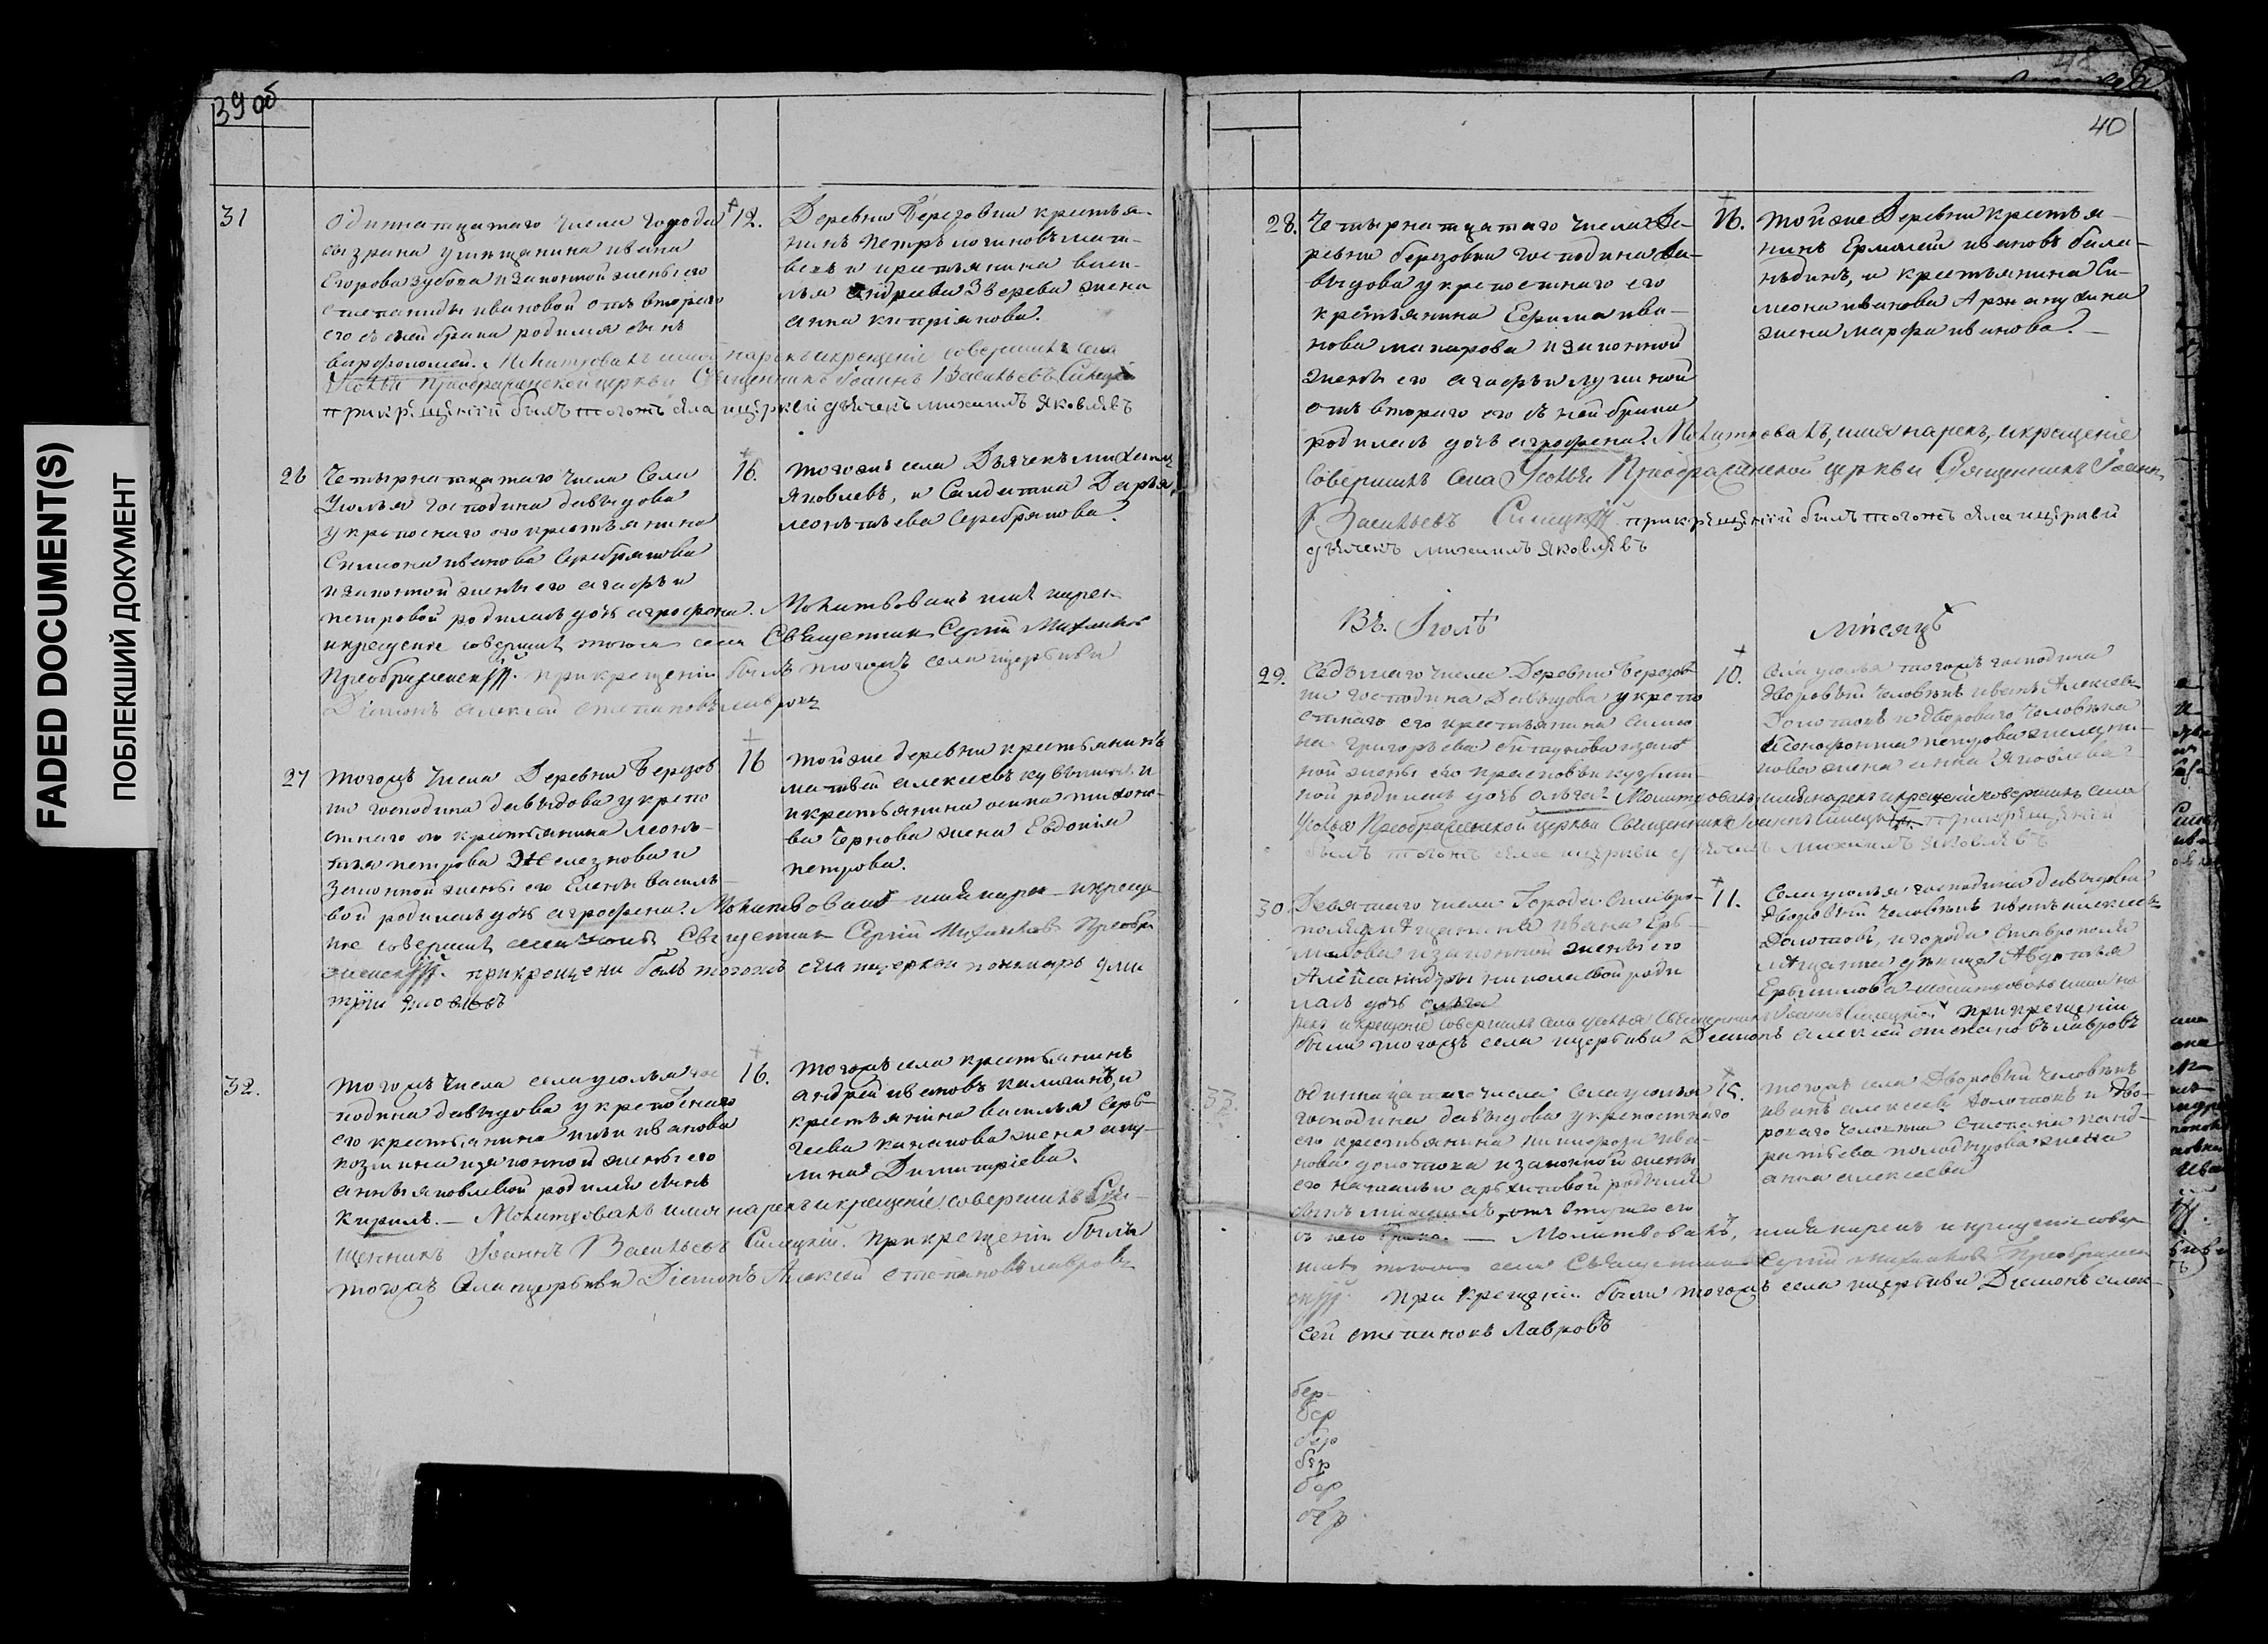 FADED DOCUMENT(S)
ПОБЛЕКШИЙ ДОКУМЕНТ
39 об
31
Одиннатцатаго числа города
сызрана у мещанина ивана
Егорова зубова и законной жены его
степаниды ивановой отъ втораго
его съ ней брака родился сынъ
варфоломей. Молитвовалъ имя нарекъ и крещеніе совершилъ села
Усолья Преображенской церкви Священникъ Іоаннъ Васильевъ
при крещеніи былъ тогожъ села и церкви дьячекъ михаилъ Яковлевъ
12.
Деревни Березовки крестья-
нинъ Петръ логиновъ
и крестьянина васи-
лья Андреева Зверева жена
анна кипріянова.
26
Четырнатцатаго числа Села
Усолья господина давыдова
у крепоснаго его крестьянина
Симиона иванова Серебрякова
и законной жены его агафьи
петровой родилась дочь агрофена. Молитвовалъ имя нарек
и крещение совершилъ тогож села Священник Сергий Михайлов
Преображенский. при крещеніи былъ тогожъ села и церькви
Дияконъ алексей степановъ лавровъ
16.
тогожъ села Дьячекъ михаилъ
Яковлевъ, и Салдатка Дарья
леонтьева Серебрякова.
27
тогожъ числа Деревни Березов
ки господина давыдова у крепо
стнаго его крестьянина леонь-
тья петрова Железнова и
законной жены его Елены василь
вой родилась дочь агрофена. Молитвовалъ имя нарек и креще
ние совершилъ села Усолья Священник Сергий Михайлов Преобра
женский. при крещени былъ тогожъ села и церкви пономарь дми
трий яковлевъ
16
той же деревни крестьянинъ
матвей алексеевъ и
и крестьянина осипа тихоно-
ва Чернова жена Евдокия
петрова.
32.
тогожъ числа села усолья гос
подина давыдова у крепостнаго
его крестьянина ильи иванова
козмина и законной жены его
анны яковлевой родился сынъ
Кирилъ. — Молитвовалъ имя нарекъ и крещеніе совершилъ Свя-
щенникъ Іоаннъ Васильевъ Силецкій. При крещеніи были
тогожъ Села и церькви Діяконъ Алексей степановъ лавровъ
16.
тогожъ села крестьянинъ
андрей ивановъ калининъ, и
крестьянина василья Серь-
геева жена аку-
лина Димитріева.
40
28.
Четырнатцатаго числа Де-
ревни березовки господина Да-
выдова у крепостнаго его
крестьянина Ефима ива-
нова макарова и законной
жены его агафьи
отъ втораго его съ ней брака
родилась дочь агрофена. Молитвовалъ, имя нарекъ, и крещеніе
совершилъ села Усолья Преображенской церкви Священникъ Іоаннъ
Васильевъ Силецкій при крещеніи былъ тогожъ села и церкви
дьячекъ михаилъ Яковлевъ
16.
той же Деревни крестья-
нинъ Ермолей ивановъ бала-
ндинъ, и крестьянина Си-
меона иванова Аржанухина
жена марфа иванова.
Въ. Іюлѣ
Мѣсяцѣ
29.
Седьмаго числа Деревни Березов-
ки господина Давыдова у крепо
стнаго его крестьянина
на Григорьева и закон
ной жены его прасковьи
ной родилась дочь ольга. Молитвовалъ, имя нарекъ и крещеніе совершилъ села
Усолья Преображенской церкви Священникъ Іоаннъ Силецкій. при крещеніи
былъ тогожъ села и церкви дьячекъ михаилъ яковлевъ
10.
Села усолья тогожъ господина
дворовый человекъ иванъ Алексеевъ
Долотовъ и дворового человека
Ксенофонта петрова
нова жена анна Яковлева
30.
Девятаго числа Города ставро-
поля мещанина ивана Ерь-
милова и законной жены его
Александры николаевой роди
лась дочь ольга
рекъ и крещеніе совершилъ села усолья Священникъ Іоаннъ Силецкій. При крещеніи
были тогожъ села и церькви Дияконъ алексей степановъ лавровъ
11.
Села усолья господина давыдова
Дворовый человекъ иванъ алексеевъ
Долотовъ, и города ставрополя
мещанка девица Авдотья
Ермилова молитвовалъ имя на
33.
одинацатаго числа села усолья
господина давыдова у крепостнаго
его крестьянина никифора ива-
нова долотова и законной жены
его натальи архиповой родился
сынъ михаилъ, отъ втораго его
съ нею брака. — Молитвовалъ, имя нарекъ и крещение совер
шилъ тогож села Священник Сергий Михайлов Преображен
ский. при крещении были тогожъ села и церькви Дияконъ алек-
сей степановъ Лавровъ
15.
тогожъ села Дворовый человекъ
иванъ алексеевъ Долотовъ и дво-
роваго человека степана
жена
анна алексеева
бер
бер
бер
бер
бер
бер